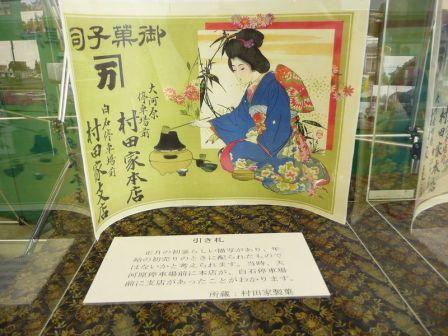 御菓子司
大河原
停車場前
村田家本店
白石停車場前
村田家支店
引き札
正月の初釜らしい描写があり、年
始の初売りのときに配られたもので
はないかと考えられます。当時、大
河原停車場前に本店が、白石停車場
前に支店があったことがわかります。
所蔵：村田家製菓